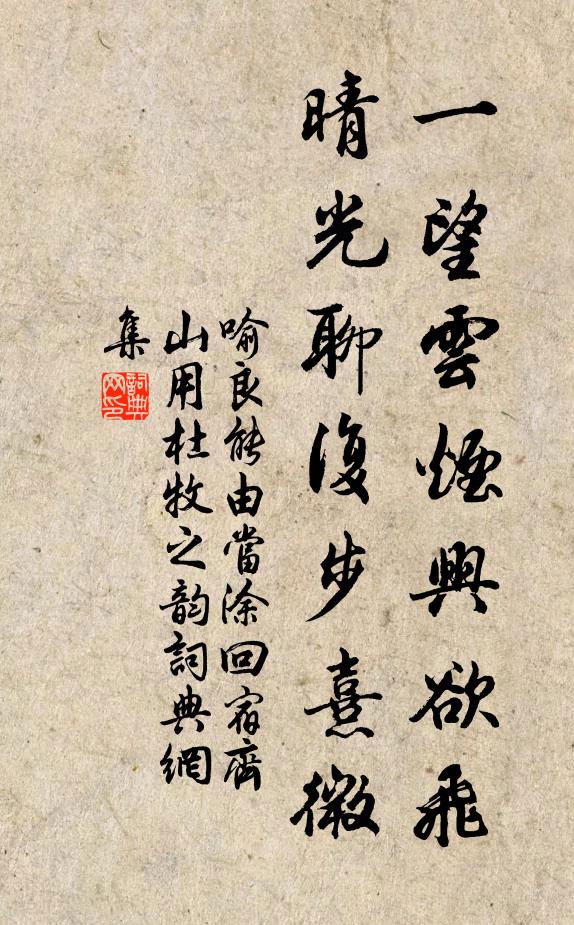 一望雲煙興欲飛
晴光聊復步熹微
喻良能由當涂回宿齊
山用杜牧之韵詞典網
集
詞典
网印